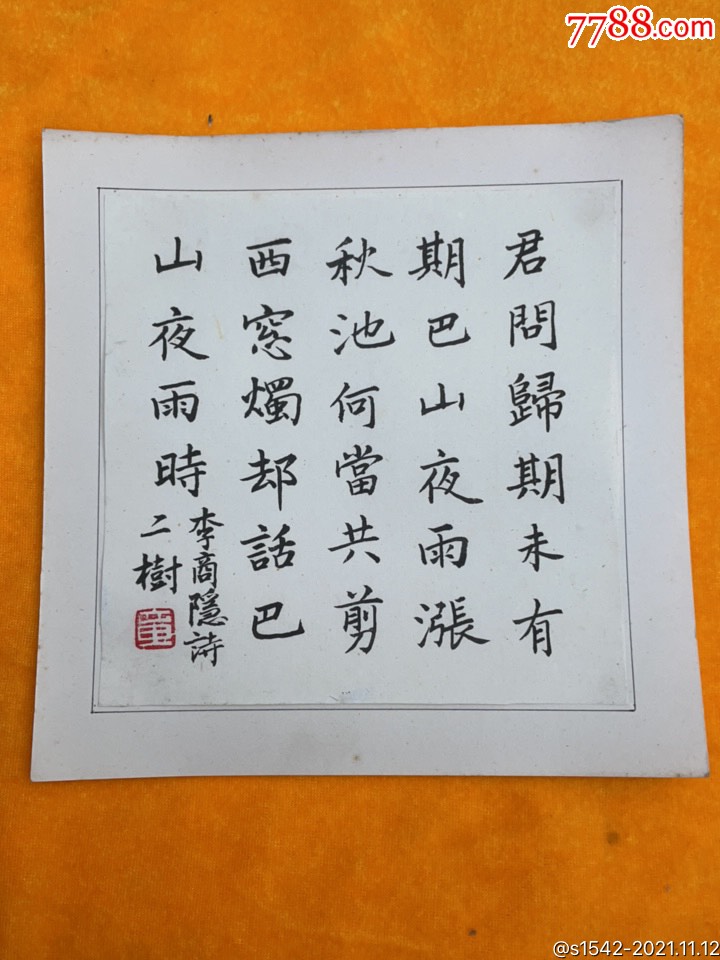 7788.com
君問歸期未有
期巴山夜雨漲
秋池何當共剪
西窓燭却話巴
山夜雨時
李商隱詩
二樹
童
@s1542-2021.11.12